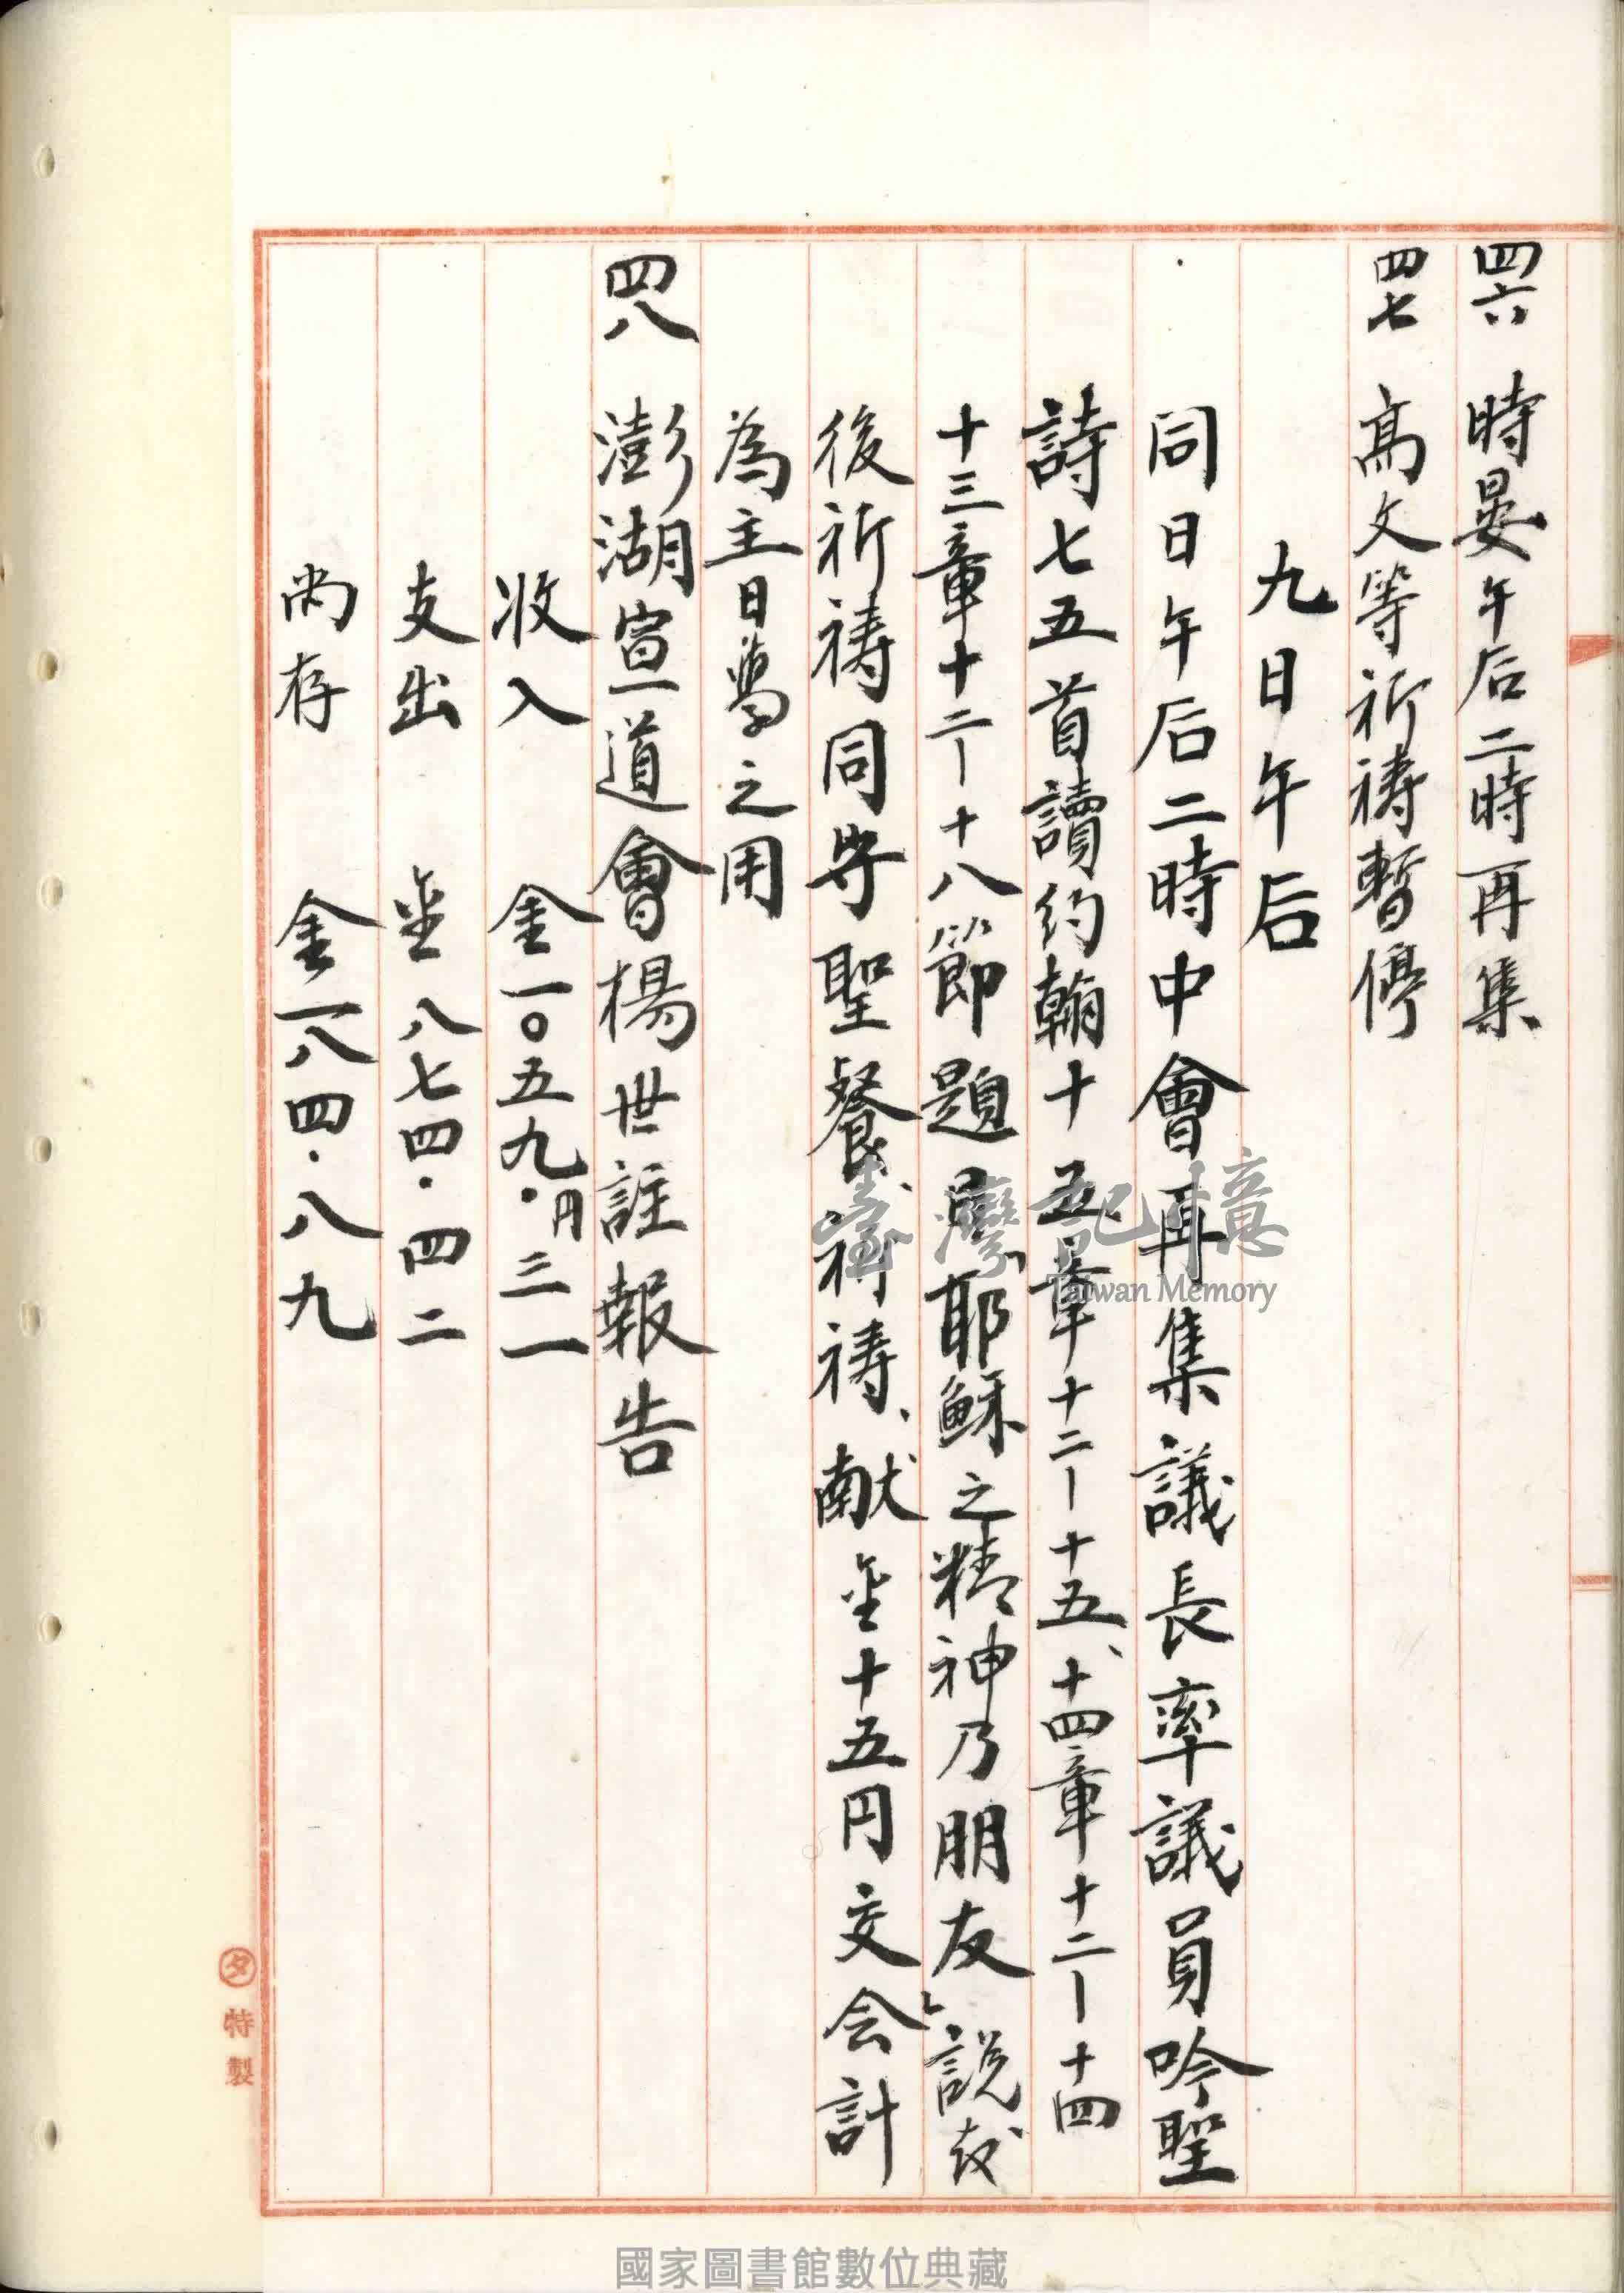 四六 時晏午后二時再集
四七 高文等祈祷暫停
九日午后
同日午后二時中會再集議長率議員吟聖
詩七五首讀約翰十五章十二ー十五、十四章十二ー十四
十三章十二ー十八節題目耶穌之精神乃朋友、説教
後祈祷同守聖餐、祈祷、献金十五円交会計
為主日學之用
四八 澎湖宣道會楊世註報告
收入 金一〇五九.円三一
支出 金八七四.四二
尚存 金一八四.八九
タ特製
臺灣記憶
Taiwan Memory
國家圖書館數位典藏